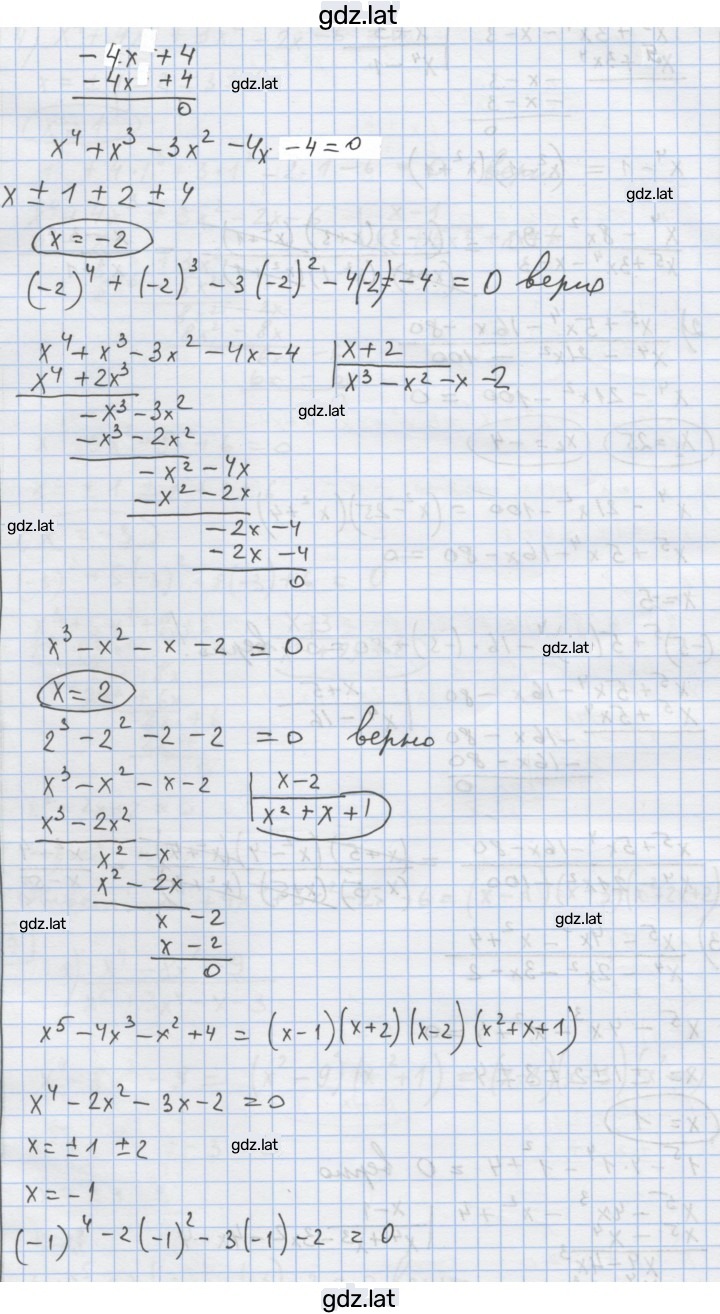 gdz.lat
- 4x + 4
- 4x + 4
gdz.lat
0
x⁴ + x³ - 3x² - 4x - 4 = 0
x ± 1 ± 2 ± 4
gdz.lat
x = -2
(-2)⁴ + (-2)³ - 3(-2)² - 4(-2) = -4 = 0 верно
x⁴ + x³ - 3x² - 4x - 4 | x + 2
x⁴ + 2x³ | x³ - x² - x - 2
- x³ - 3x²
gdz.lat
- x³ - 2x²
- x² - 4x
- x² - 2x
gdz.lat
- 2x - 4
- 2x - 4
0
x³ - x² - x - 2 = 0
gdz.lat
x = 2
2³ - 2² - 2 - 2 = 0 верно
x³ - x² - x - 2 | x - 2
x³ - 2x² | x² + x + 1
x² - x
x² - 2x
gdz.lat
x - 2
gdz.lat
x - 2
0
x⁵ - 4x³ - x² + 4 = (x - 1)(x + 2)(x - 2)(x² + x + 1)
x⁴ - 2x² - 3x - 2 = 0
x = ± 1 ± 2
gdz.lat
x = -1
(-1)⁴ - 2(-1)² - 3(-1) - 2 = 0
gdz.lat